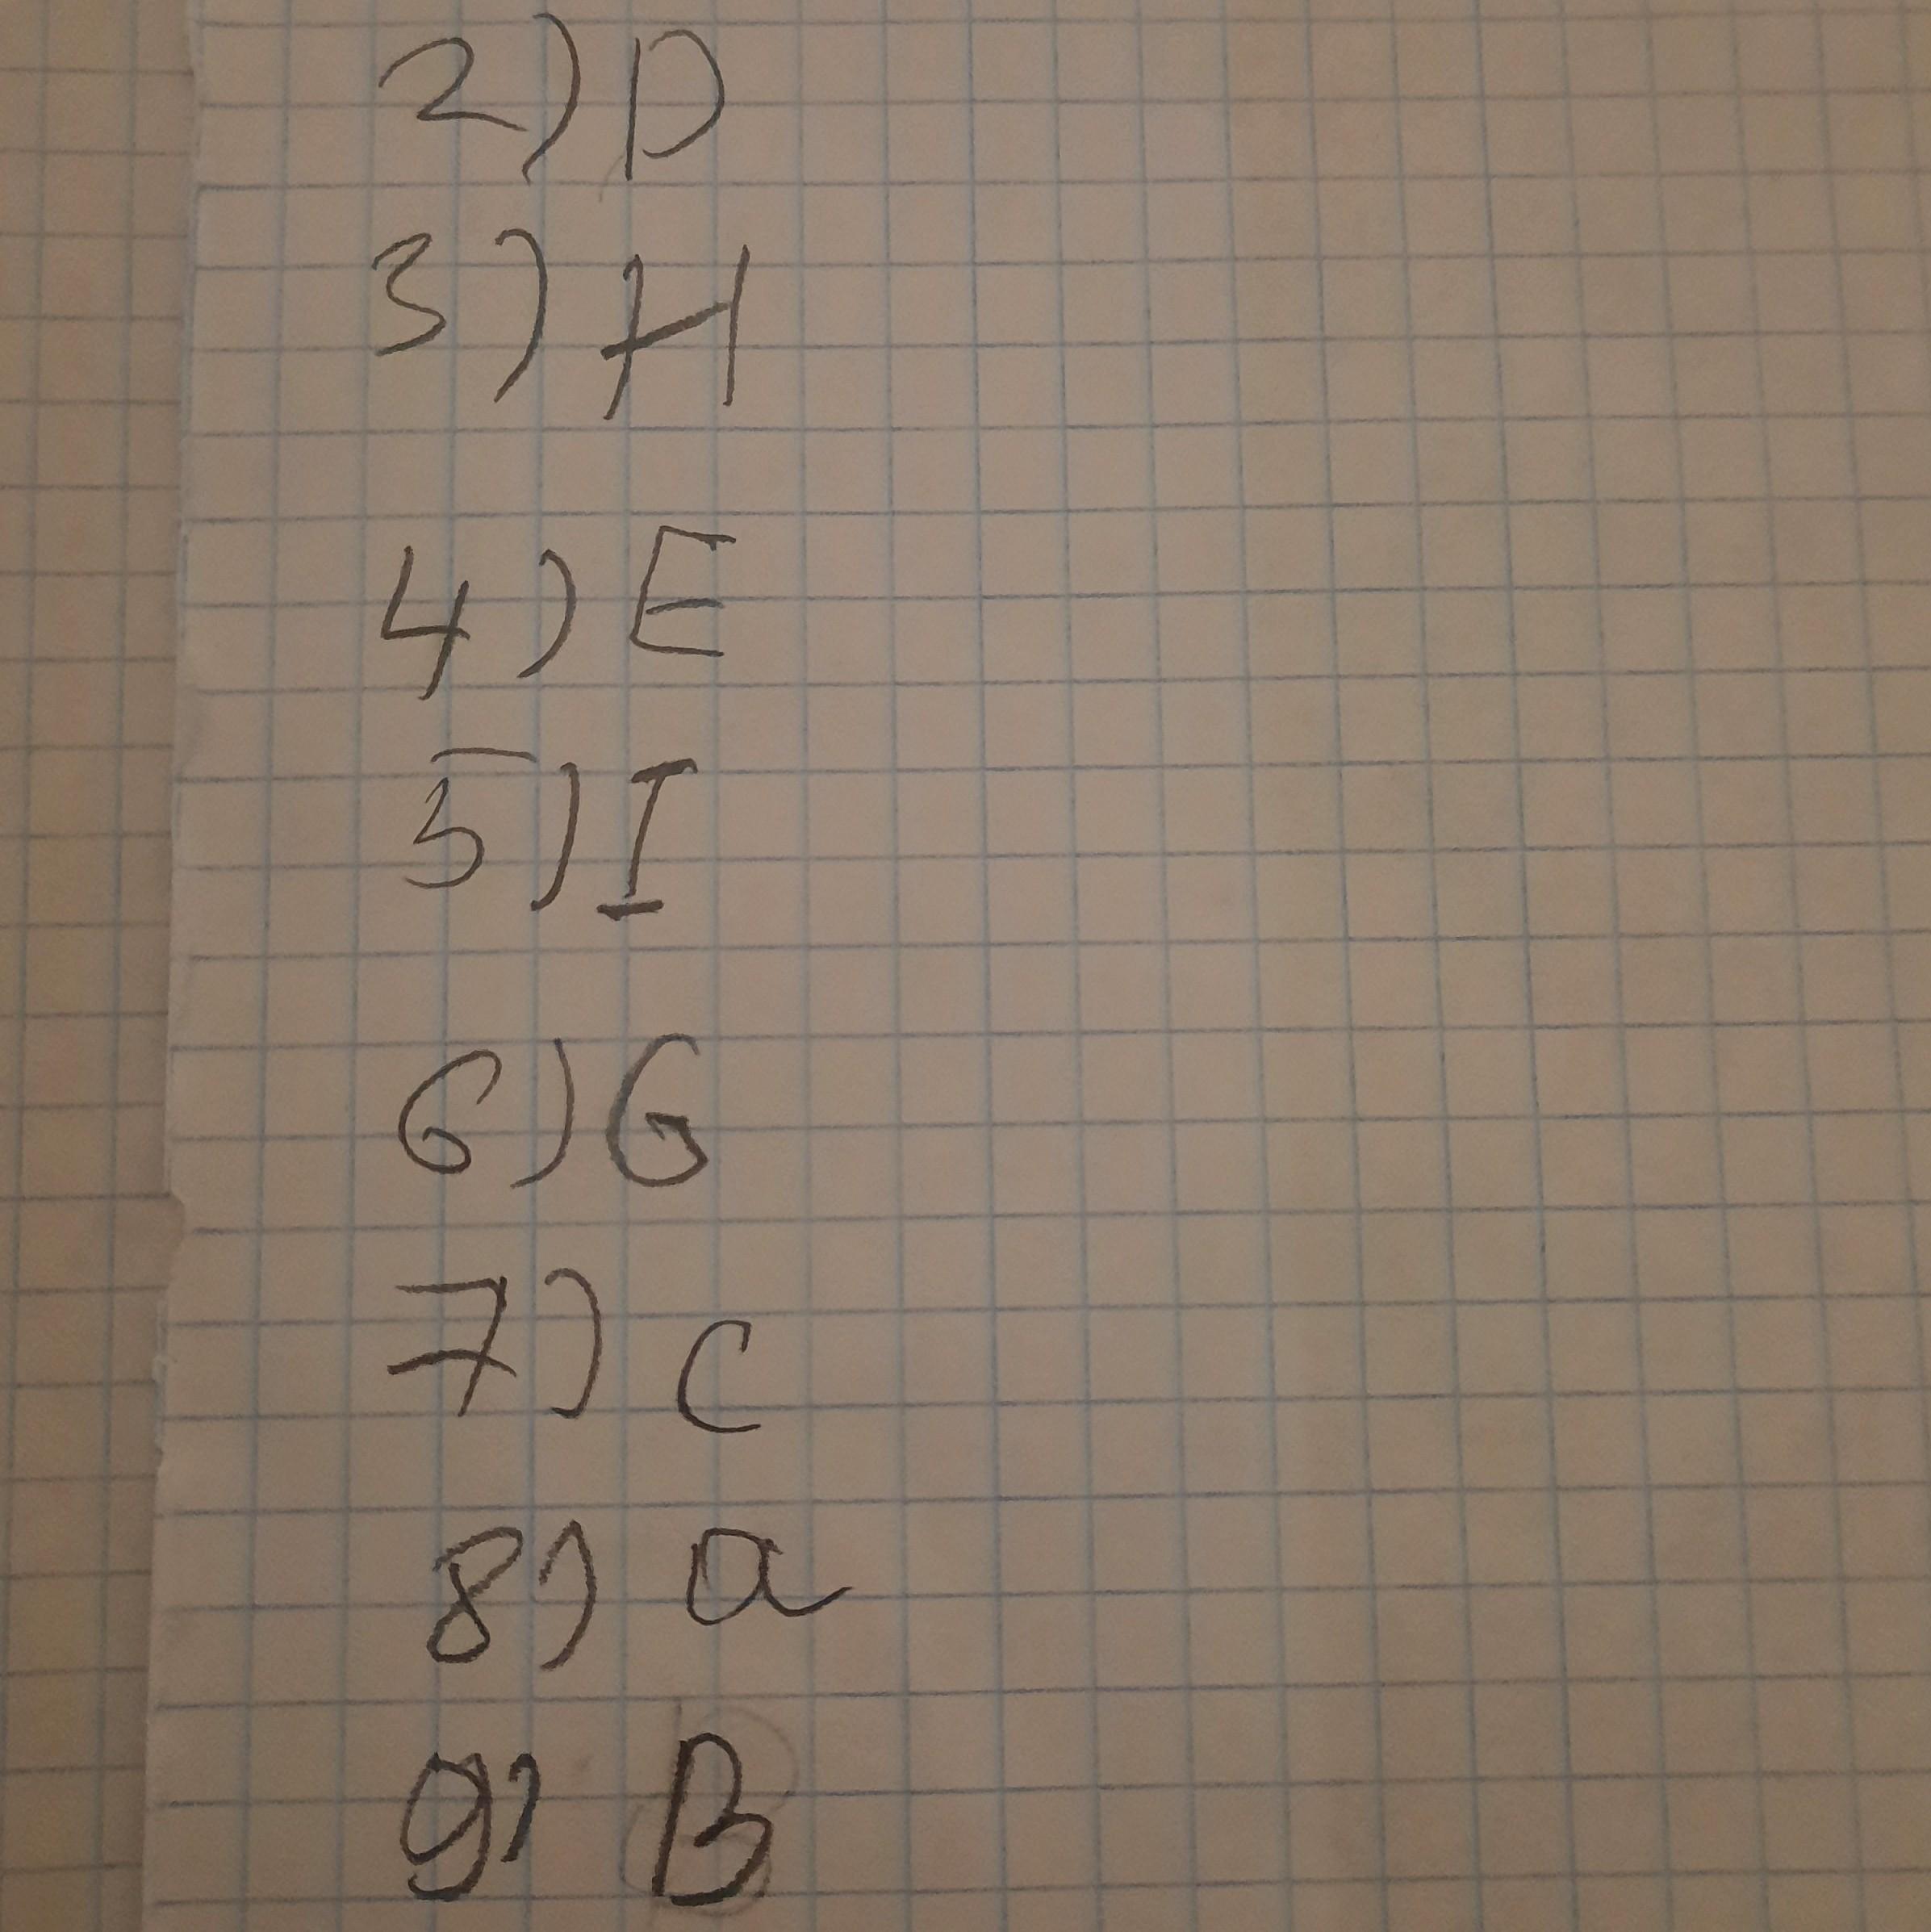 2) D
3) H
4) E
5) I
6) G
7) C
8) a
9) B